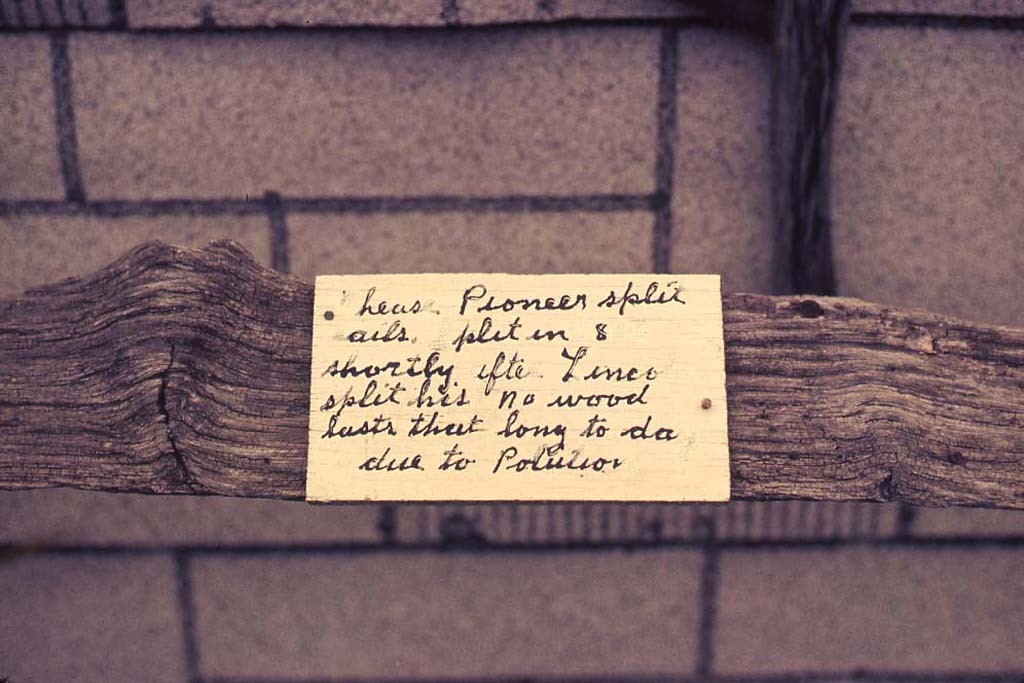 hese Pioneer split
ails. plit in 8
shortly fte Linco
split his no wood
lasts that long to da
due to Polution